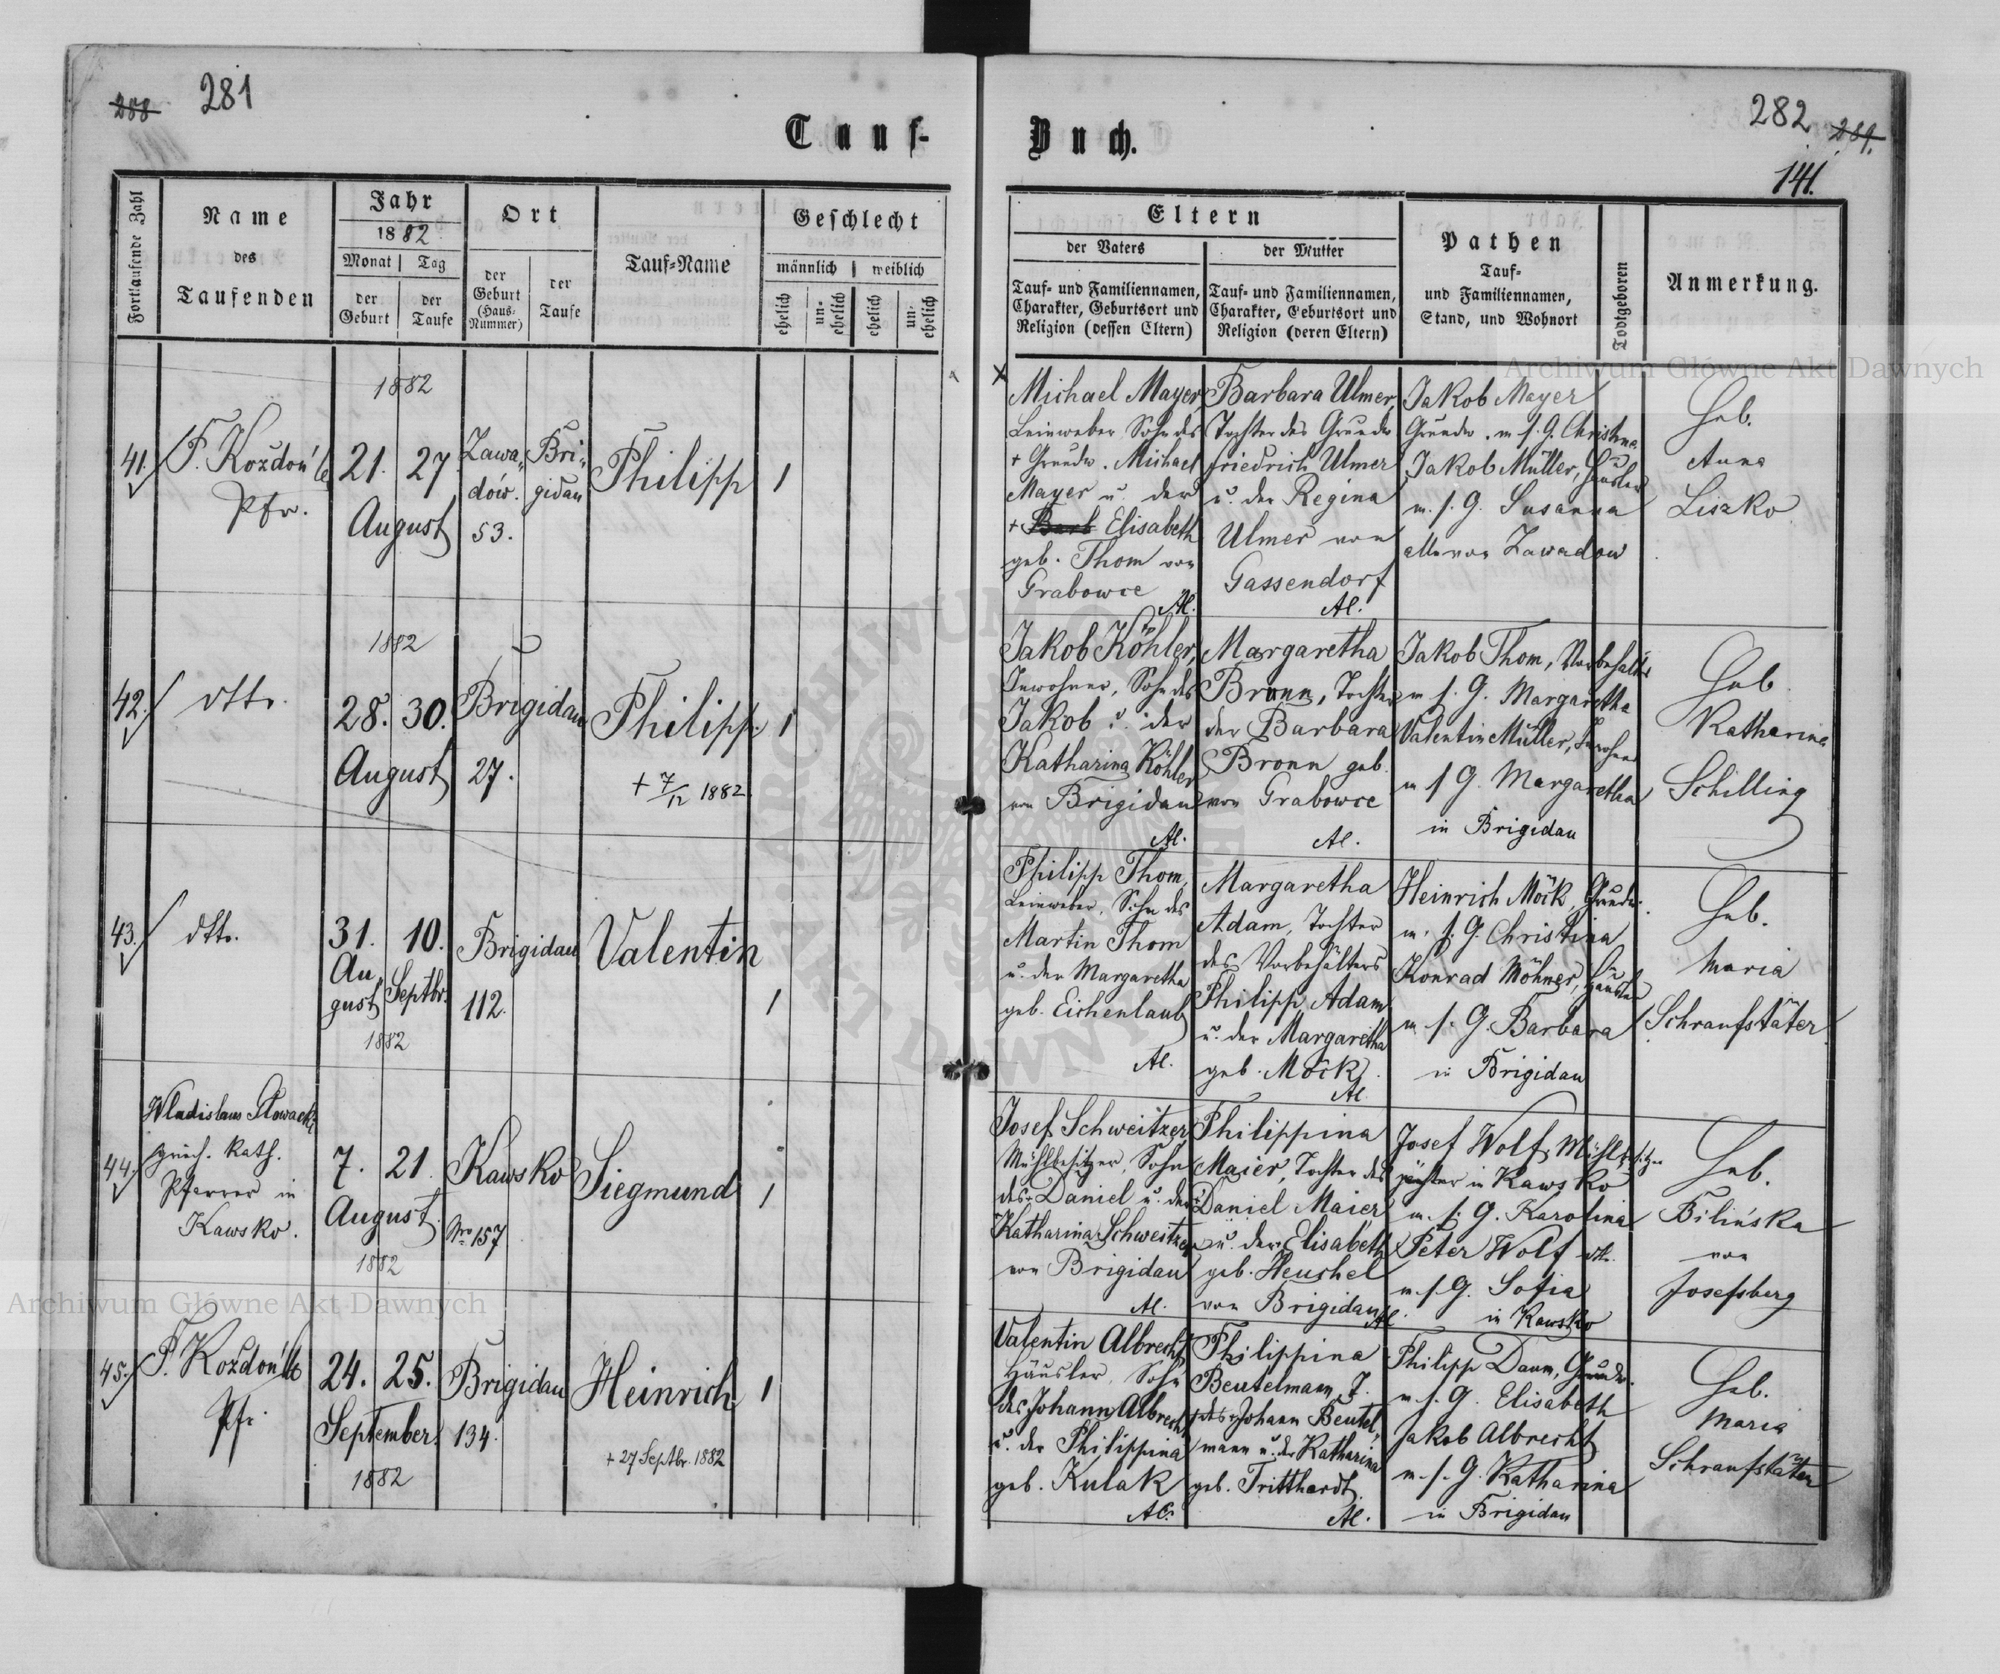 288
281
Tauf-
Buch.
282
289.
141.
Fortlaufende Zahl
Name
des
Taufenden
Jahr
1882
Monat
Tag
der
Geburt
der
Taufe
Ort
der
Geburt
(Haus-
Nummer)
der
Taufe
Tauf-Name
Geschlecht
männlich
weiblich
ehelich
un-
ehelich
ehelich
un-
ehelich
Eltern
der Vaters
der Mutter
Tauf- und Familiennamen,
Charakter, Geburtsort und
Religion (dessen Eltern)
Tauf- und Familiennamen,
Charakter, Geburtsort und
Religion (deren Eltern)
Pathen
Tauf-
und Familiennamen,
Stand, und Wohnort
Todtgeboren
Anmerkung.
41.
F. Koždoń
Pfr.
1882
21. 27
August
Zawa-
dów.
53.
Bri-
gidau
Philipp
1
Michael Mayer
Leinweber, Sohn des
+ Grundw. Michael
Mayer u. der
+ Barb Elisabeth
geb. Thom von
Grabowce
Al.
Barbara Ulmer,
Tochter des Grundw
Friedrich Ulmer
u. der Regina
Ulmer von
Gassendorf
Al.
Jakob Mayer
Grundw. m. s. G. Christina
Jakob Müller, Häusler
m. s. G. Susanna
alle von Zawadow
Heb.
Anna
Liszko
42.
dtto.
1882
28. 30.
August
Brigidau
27.
Philipp
+ 7/12 1882
1
Jakob Köhler,
Inwohner, Sohn des
Jakob u. der
Katharina Köhler
von Brigidau
Al.
Margaretha
Bronn, Tochter
der Barbara
Bronn geb.
von Grabowce
Al.
Jakob Thom, Vorbehält
m s. G. Margaretha
Valentin Müller, Inwohner
m s G. Margaretha
in Brigidau
Heb.
Katharina
Schilling
43.
dtto.
31. 10.
Au-
gust
Septbr.
1882
Brigidau
112.
Valentin
1
Philipp Thom,
Leinweber, Sohn des
Martin Thom
u. der Margaretha
geb. Eichenlaub
Al.
Margaretha
Adam, Tochter
des Vorbehälters
Philipp Adam
u. der Margaretha
geb. Möck
Al.
Heinrich Möck, Grundw.
m. s. G. Christina
Konrad Möhner, Häusler
m. s. G. Barbara
in Brigidau
Heb.
Maria
Schraufstäter
44.
Wladislaus Słowacki
griech. kath.
Pfarrer in
Kawsko.
7. 21
August.
1882
Kawsko
Nro 157
Siegmund
1
Josef Schweitzer
Mühlbesitzer, Sohn
des Daniel u. der
Katharina Schweitzer
von Brigidau
Al.
Philippina
Maier, Tochter des
Daniel Maier
u. der Elisabeth
geb. Heuchel
von Brigidau
Al.
Josef Wolf, Mühl
pächter in Kawsko
m. s. G. Karolina
Peter Wolf dtto.
m. s. G. Sofia
in Kawsko
Heb.
Bilińska
von
Josefsberg
45.
F. Koždoń
Pfr.
24. 25.
September.
1882
Brigidau
134.
Heinrich
+ 27 Septbr. 1882
1
Valentin Albrecht
Häusler, Sohn
des Johann Albrecht
u. der Philippina
geb. Kulak
Al.
Philippina
Beutelmann, T.
des Johann Beutel-
mann u. der Katharina
geb. Tritthardt.
Al.
Philipp Daum, Grundw.
m. s. G. Elisabeth
Jakob Albrecht
m. s. G. Katharina
in Brigidau
Heb.
Maria
Schraufstäter
Archiwum Główne Akt Dawnych
Archiwum Główne Akt Dawnych